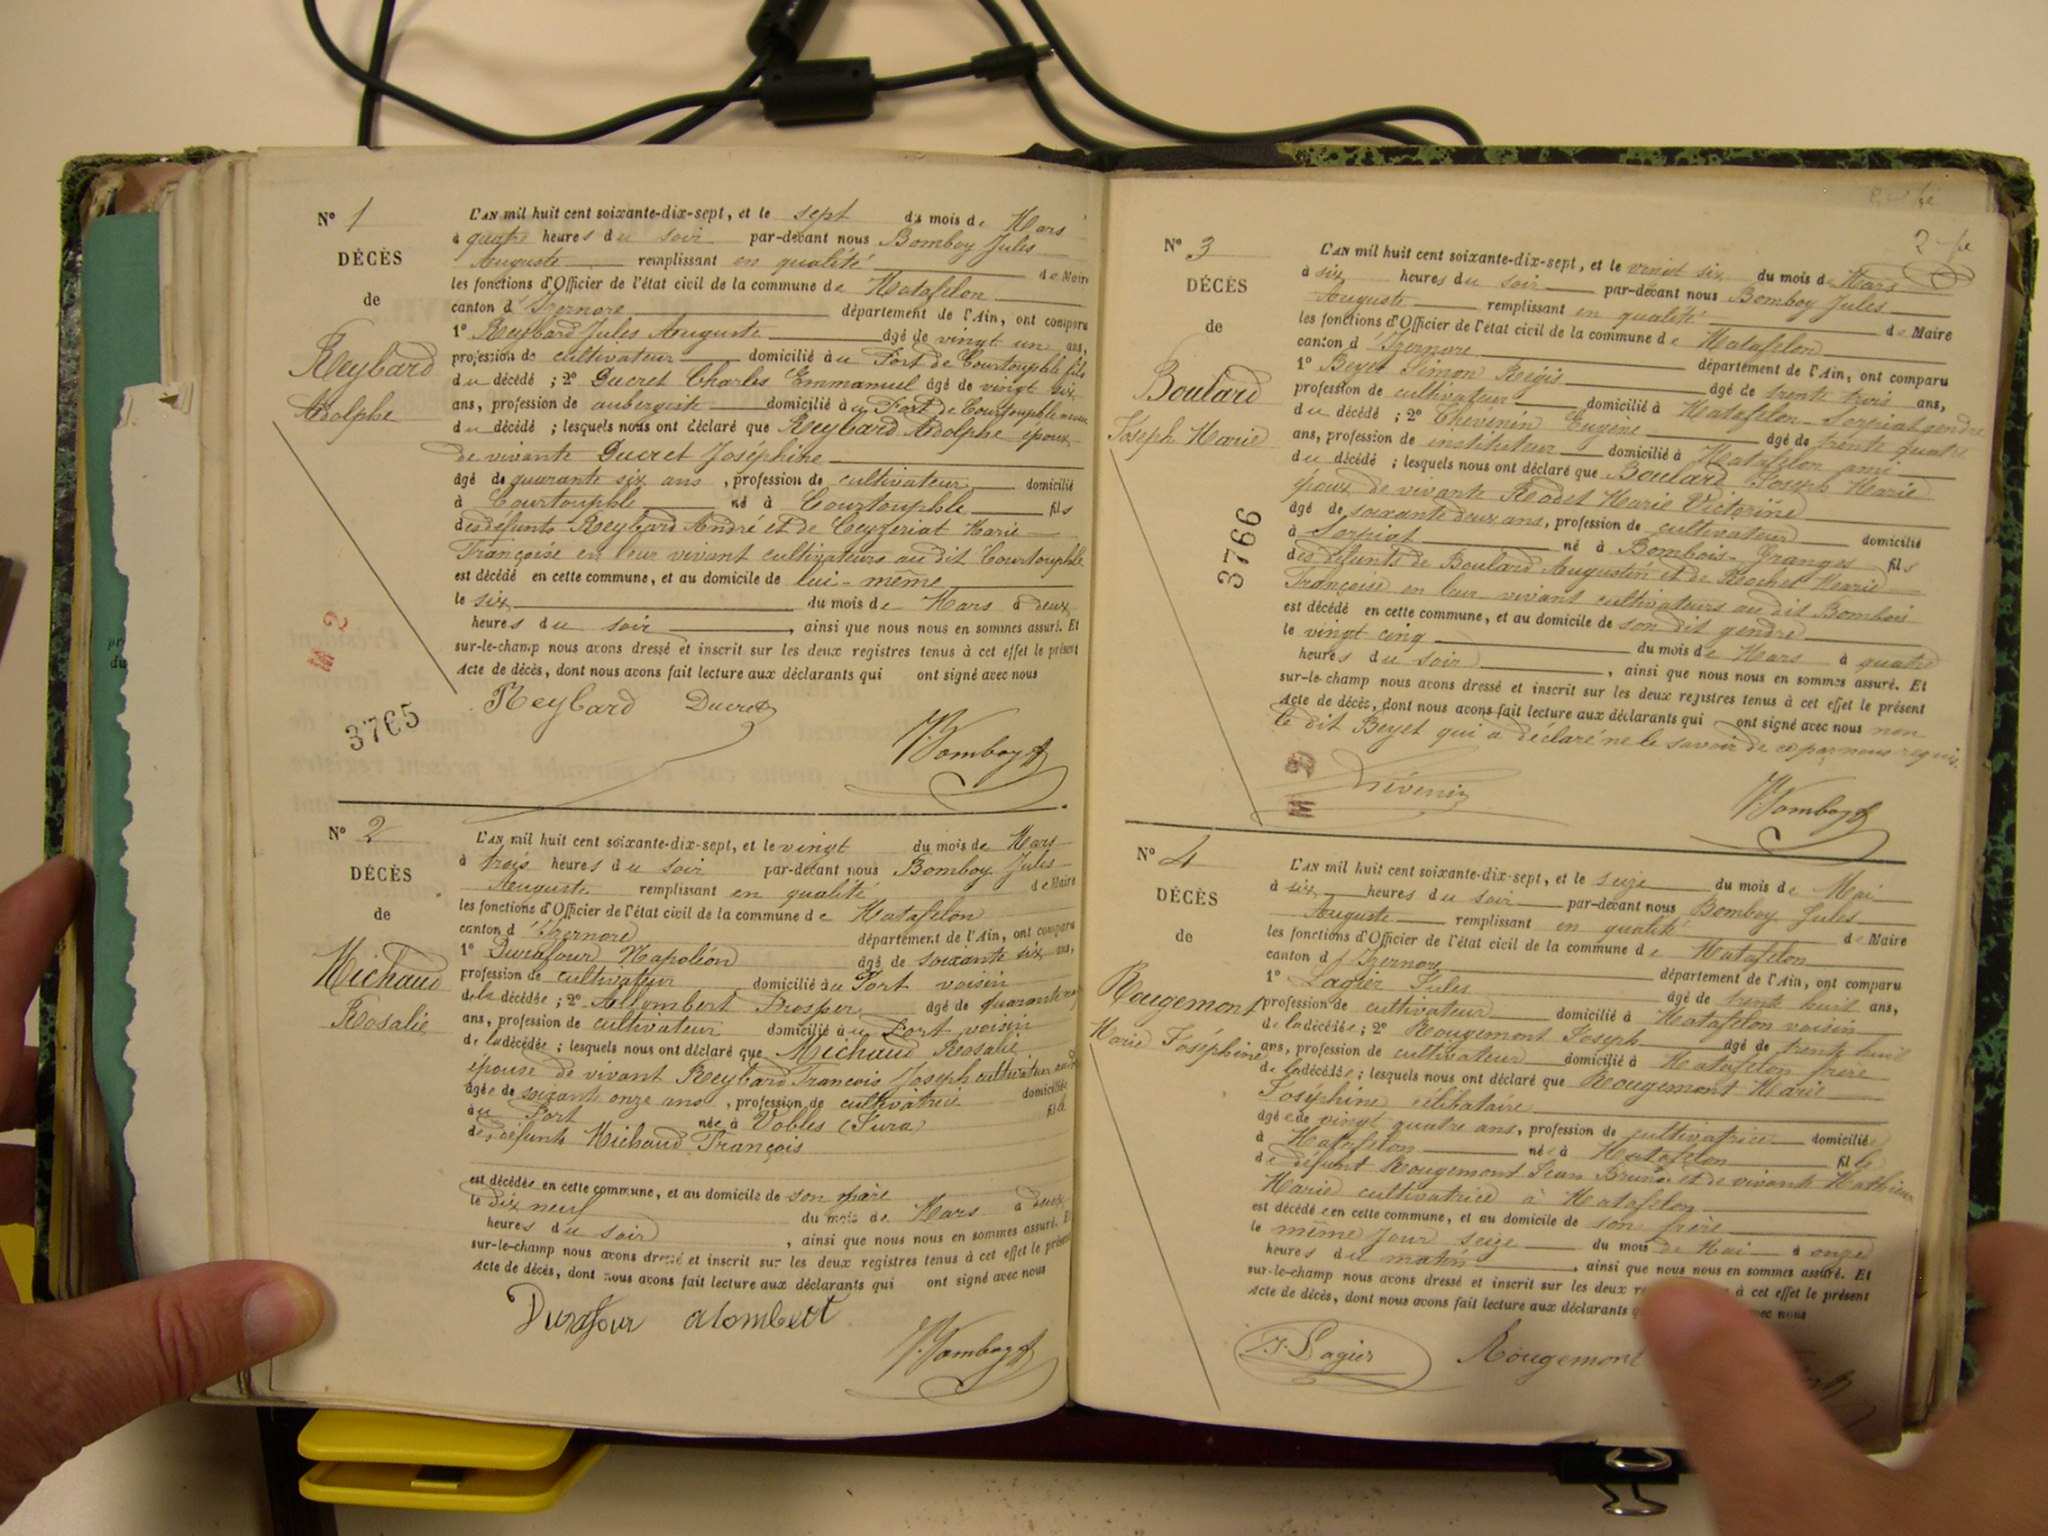 N° 1
DÉCÈS
de
Reybard
Adolphe
L'AN mil huit cent soixante-dix-sept, et le sept du mois de Mars
à quatre heures du soir par-devant nous Bomboy Jules
Auguste remplissant en qualité de Maire
les fonctions d'Officier de l'état civil de la commune de Matafelon
canton d'Izernore département de l'Ain, ont comparu
1° Reybard Jules Auguste âgé de vingt un ans,
profession de cultivateur domicilié au Port de Courtouphle fils
du décédé ; 2° Ducret Charles Emmanuel âgé de vingt six
ans, profession de aubergiste domicilié au Port de Courtouphle
du décédé ; lesquels nous ont déclaré que Reybard Adolphe époux
de vivante Ducret Joséphine
âgé de quarante six ans, profession de cultivateur domicilié
à Courtouphle né à Courtouphle fils
des défunts Reybard André et de Ceyzeriat Marie
Françoise en leur vivant cultivateurs au dit Courtouphle
est décédé en cette commune, et au domicile de lui-même
le six du mois de Mars à deux
heures du soir, ainsi que nous nous en sommes assuré. Et
sur-le-champ nous avons dressé et inscrit sur les deux registres tenus à cet effet le présent
Acte de décès, dont nous avons fait lecture aux déclarants qui ont signé avec nous
Reybard Ducret
J. Bomboy
M 2
3765
N° 2
DÉCÈS
de
Michaud
Rosalie
L'AN mil huit cent soixante-dix-sept, et le vingt du mois de Mars
à trois heures du soir par-devant nous Bomboy Jules
Auguste remplissant en qualité de Maire
les fonctions d'Officier de l'état civil de la commune de Matafelon
canton d'Izernore département de l'Ain, ont comparu
1° Durafour Napoléon âgé de soixante six ans,
profession de cultivateur domicilié au Port voisin
de la décédée ; 2° Allombert Prosper âgé de quarante
ans, profession de cultivateur domicilié au Port voisin
de la décédée ; lesquels nous ont déclaré que Michaud Rosalie
épouse de vivant Reybard François Joseph cultivateur
âgée de soixante onze ans, profession de cultivatrice domiciliée
au Port née à Vobles (Jura) fille
des défunts Michaud François
est décédée en cette commune, et au domicile de son
le dix neuf du mois de Mars à deux
heures du soir, ainsi que nous nous en sommes assuré. Et
sur-le-champ nous avons dressé et inscrit sur les deux registres tenus à cet effet le présent
Acte de décès, dont nous avons fait lecture aux déclarants qui ont signé avec nous
Durafour alombert
J. Bomboy
2
N° 3
DÉCÈS
de
Boulard
Joseph Marie
L'AN mil huit cent soixante-dix-sept, et le vingt six du mois de Mars
à six heures du soir par-devant nous Bomboy Jules
Auguste remplissant en qualité de Maire
les fonctions d'Officier de l'état civil de la commune de Matafelon
canton d'Izernore département de l'Ain, ont comparu
1° Beyet Simon Régis âgé de trente trois ans,
profession de cultivateur domicilié à Matafelon-Sorpiat gendre
du décédé ; 2° Thévenin Eugène âgé de trente quatre
ans, profession de instituteur domicilié à Matafelon ami
du décédé ; lesquels nous ont déclaré que Boulard Joseph Marie
époux de vivante Rodet Marie Victorine
âgé de soixante deux ans, profession de cultivateur domicilié
à Sorpiat né à Bombois-Granges fils
des défunts de Boulard Augustin et de Rochet Marie
Françoise en leur vivant cultivateurs au dit Bombois
est décédé en cette commune, et au domicile de son dit gendre
le vingt cinq du mois de Mars à quatre
heures du soir, ainsi que nous nous en sommes assuré. Et
sur-le-champ nous avons dressé et inscrit sur les deux registres tenus à cet effet le présent
Acte de décès, dont nous avons fait lecture aux déclarants qui ont signé avec nous non
le dit Beyet qui a déclaré ne le savoir de ce par nous requis.
Thévenin
J. Bomboy
3766
M 3
N° 4
DÉCÈS
de
Rougemont
Marie Joséphine
L'AN mil huit cent soixante-dix-sept, et le seize du mois de Mai
à six heures du soir par-devant nous Bomboy Jules
Auguste remplissant en qualité de Maire
les fonctions d'Officier de l'état civil de la commune de Matafelon
canton d'Izernore département de l'Ain, ont comparu
1° Lagier Jules âgé de trente huit ans,
profession de cultivateur domicilié à Matafelon voisin
de la décédée ; 2° Rougemont Joseph âgé de trente huit
ans, profession de cultivateur domicilié à Matafelon frère
de la décédée ; lesquels nous ont déclaré que Rougemont Marie
Joséphine célibataire
âgée de vingt quatre ans, profession de cultivatrice domiciliée
à Matafelon née à Matafelon fille
de défunt Rougemont Jean Bruno et de vivante Mathieu
Marie cultivatrice à Matafelon
est décédée en cette commune, et au domicile de son frère
le même jour seize du mois de Mai à onze
heures du matin, ainsi que nous nous en sommes assuré. Et
sur-le-champ nous avons dressé et inscrit sur les deux à cet effet le présent
Acte de décès, dont nous avons fait lecture aux déclarants avec nous
J. Lagier Rougemont